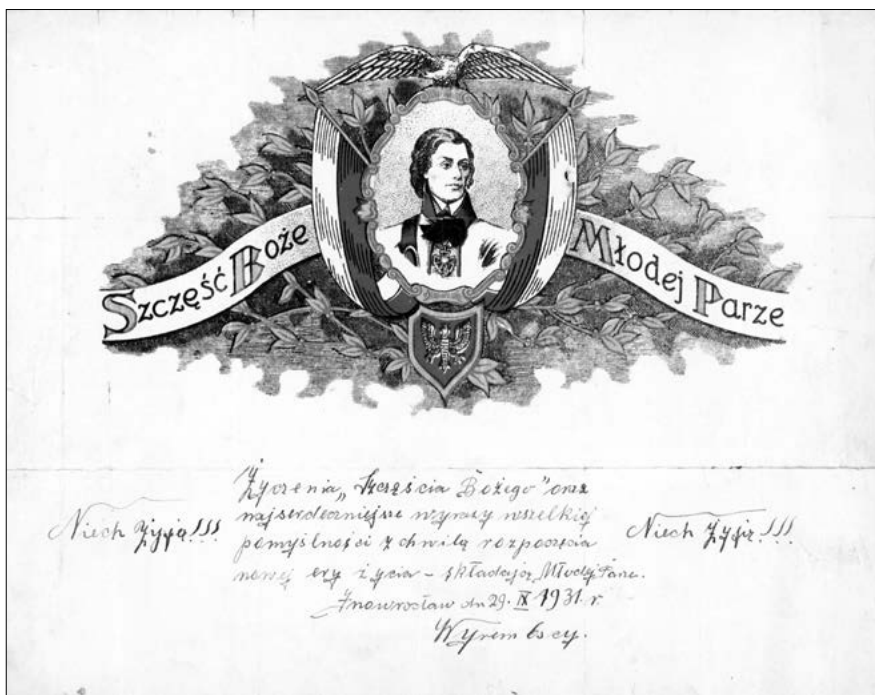 Szczęść Boże Młodej Parze
Życzenia „Szczęścia Bożego" oraz
najserdeczniejsze wyrazy wszelkiej
pomyślności z chwilą rozpoczęcia
nowej ery życia – składają Młodej Parze.
Niech żyją!!!
Niech żyją!!!
Inowrocław dn 29. IX 1931. r.
Wyrembscy.